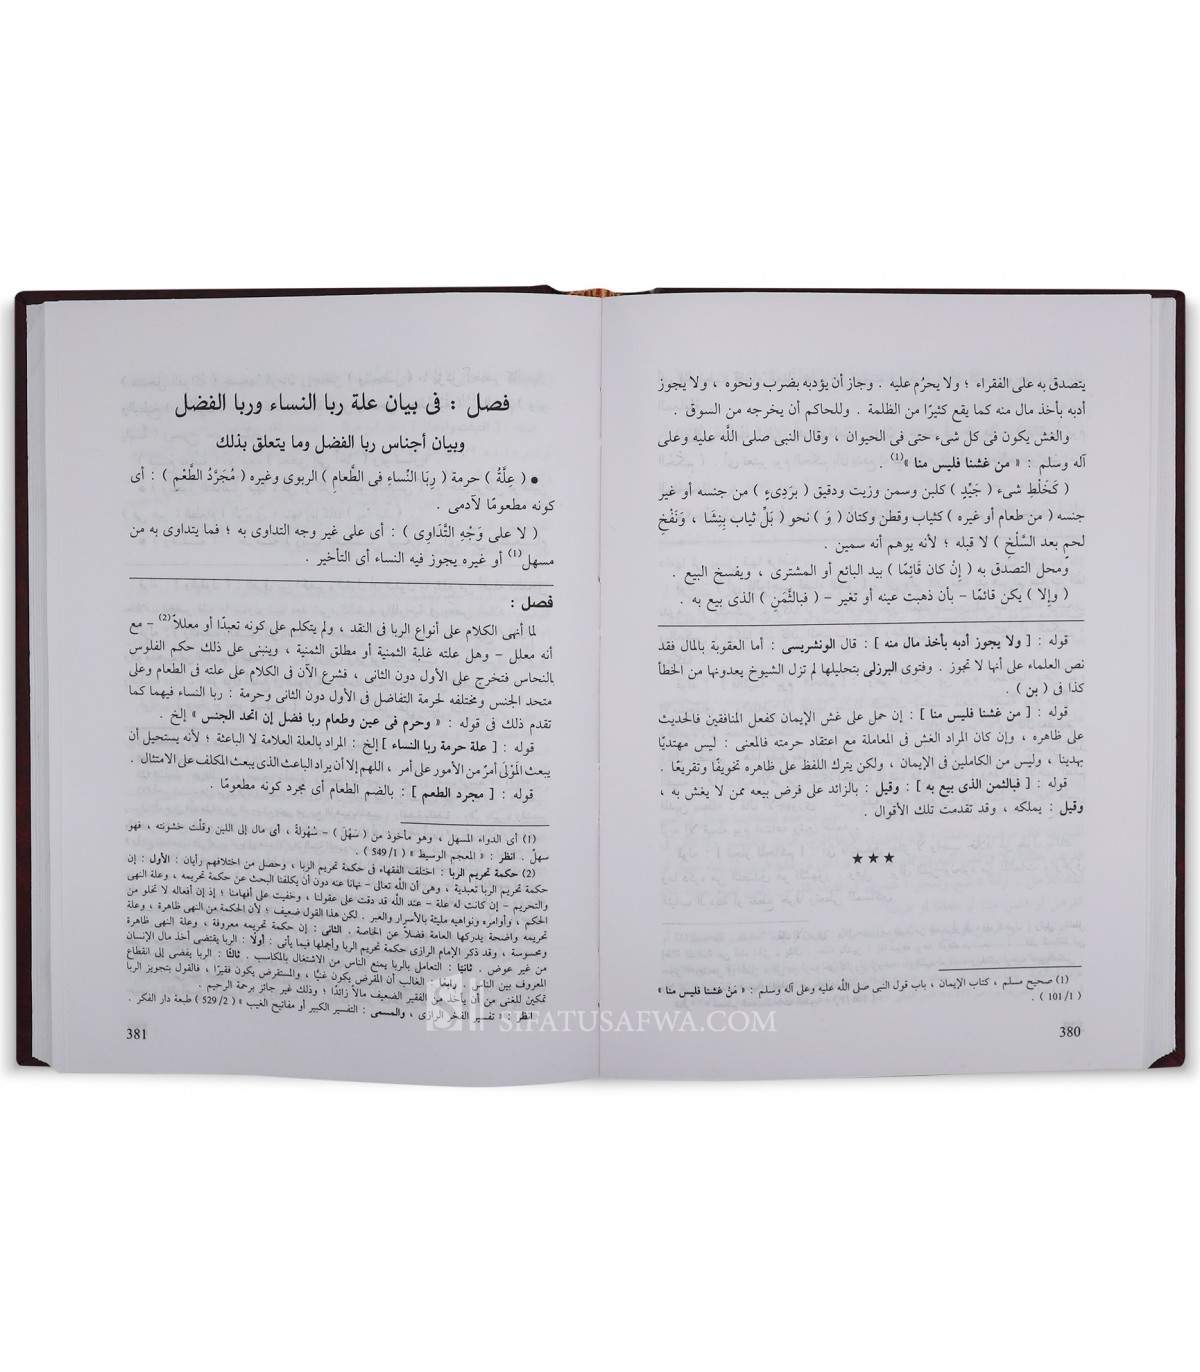 يتصدق به على الفقراء ؛ ولا يحرُم عليه . وجاز أن يؤدبه بضرب ونحوه ، ولا يجوز
أدبه بأخذ مال منه كما يقع كثيرًا من الظلمة . وللحاكم أن يخرجه من السوق .
والغش يكون فى كل شىء حتى فى الحيوان ، وقال النبى صلى اللَّه عليه وعلى
آله وسلم : « من غشنا فليس منا »(1) .
( كَخَلْطِ شىء ( جَيِّدٍ ) كلبن وسمن وزيت ودقيق ( برَدِىءٍ ) من جنسه أو غير
جنسه ( من طعام أو غيره ) كثياب وقطن وكتان ( وَ ) نحو ( بَلِّ ثياب بِنِشَا ، وَنَفْخِ
لحمٍ بعد السَّلْخِ ) لا قبله ؛ لأنه يوهم أنه سمين .
ومحل التصدق به ( إنْ كان قَائِمًا ) بيد البائع أو المشترى ، ويفسخ البيع .
( وإلا ) يكن قائمًا – بأن ذهبت عينه أو تغير – ( فبالثَّمَنِ ) الذى بيع به .
قوله : [ ولا يجوز أدبه بأخذ مال منه ] : قال الونشريسى : أما العقوبة بالمال فقد
نص العلماء على أنها لا تجوز . وفتوى البرزلى بتحليلها لم تزل الشيوخ يعدونها من الخطأ
كذا فى ( بن ) .
قوله : [ من غشنا فليس منا ] : إن حمل على غش الإيمان كفعل المنافقين فالحديث
على ظاهره ، وإن كان المراد الغش فى المعاملة مع اعتقاد حرمته فالمعنى : ليس مهتديًا
بهدينا ، وليس من الكاملين فى الإيمان ، ولكن يترك اللفظ على ظاهره تخويفًا وتقريعًا .
قوله : [ فبالثمن الذى بيع به ] : وقيل : بالزائد على فرض بيعه ممن لا يغش به ،
وقيل : يملكه ، وقد تقدمت تلك الأقوال .
★★★
(1) صحيح مسلم ، كتاب الإيمان ، باب قول النبى صلى اللَّه عليه وعلى آله وسلم : « مَنْ غشنا فليس منا »
( 1/ 101 ) .
380
فصل : فى بيان علة ربا النساء وربا الفضل
وبيان أجناس ربا الفضل وما يتعلق بذلك
● ( عِلَّةُ ) حرمة ( رِبَا النَّساءِ فى الطَّعامِ ) الربوى وغيره ( مُجَرَّدُ الطَّعْمِ ) : أى
كونه مطعومًا لآدمى .
( لا على وَجْهِ التَّدَاوِى ) : أى على غير وجه التداوى به ؛ فما يتداوى به من
مسهل(1) أو غيره يجوز فيه النساء أى التأخير .
فصل :
لما أنهى الكلام على أنواع الربا فى النقد ، ولم يتكلم على كونه تعبدًا أو معللاً(2) – مع
أنه معلل – وهل علته غلبة الثمنية أو مطلق الثمنية ، وينبنى على ذلك حكم الفلوس
بالنحاس فتخرج على الأول دون الثانى ، فشرع الآن فى الكلام على علته فى الطعام وعلى
متحد الجنس ومختلفه لحرمة التفاضل فى الأول دون الثانى وحرمة : ربا النساء فيهما كما
تقدم ذلك فى قوله : « وحرم فى عين وطعام ربا فضل إن اتحد الجنس » إلخ .
قوله : [ علة حرمة ربا النساء ] إلخ : المراد بالعلة العلامة لا الباعثة ؛ لأنه يستحيل أن
يبعث المَوْلَى أمرٌ من الأمور على أمر ، اللهم إلا أن يراد الباعث الذى يبعث المكلف على الامتثال .
قوله : [ مجرد الطعم ] : بالضم الطعام أى مجرد كونه مطعومًا .
(1) أى الدواء المسهل ، وهو مأخوذ من ( سَهُلَ ) – سُهُولةً ، أى مال إلى اللين وقلّت خشونته ، فهو
سهلٌ . انظر : « المعجم الوسيط » ( 1/ 549 ) .
(2) حكمة تحريم الربا : اختلف الفقهاء فى حكمة تحريم الربا ، وحصل من اختلافهم رأيان : الأول : إن
حكمة تحريم الربا تعبدية ، وهى أن اللَّه تعالى – نهانا عنه دون أن يكلفنا البحث عن حكمة تحريمه ، وعلة النهى
والتحريم – إن كانت له علة – عند اللَّه قد دقت على عقولنا ، وخفيت على أفهامنا ؛ إذ إن أفعاله لا تخلو من
الحكم ، وأوامره ونواهيه مليئة بالأسرار والعبر . لكن هذا القول ضعيف ؛ لأن الحكمة من النهى ظاهرة ، وعلة
تحريمه واضحة يدركها العامة فضلاً عن الخاصة . الثانى : إن حكمة تحريمه معروفة ، وعلة النهى ظاهرة
ومحسوسة ، وقد ذكر الإمام الرازى حكمة تحريم الربا وأجملها فيما يأتى : أولًا : الربا يقتضى أخذ مال الإنسان
من غير عوض . ثانيًا : التعامل بالربا يمنع الناس من الاشتغال بالمكاسب . ثالثًا : الربا يفضى إلى انقطاع
المعروف بين الناس . رابعًا : الغالب أن المقرض يكون غنيًّا ، والمستقرض يكون فقيرًا ، فالقول بتجويز الربا
تمكين للغنى من أن يأخذ من الفقير الضعيف مالاً زائدًا ؛ وذلك غير جائز برحمة الرحيم .
انظر : « تفسير الفخر الرازى ، والمسمى : التفسير الكبير أو مفاتيح الغيب » ( 2/ 529 ) طبعة دار الفكر .
381
SIFATUSAFWA.COM